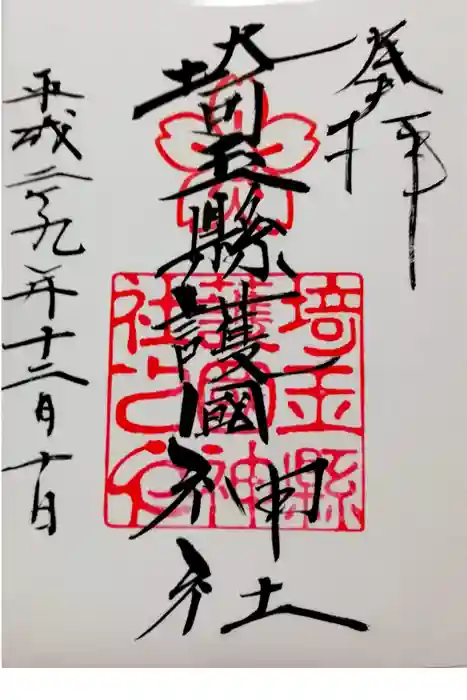 奉拝
埼玉縣護國神社
平成二十九年十二月十日
埼玉縣
護國神
社之印